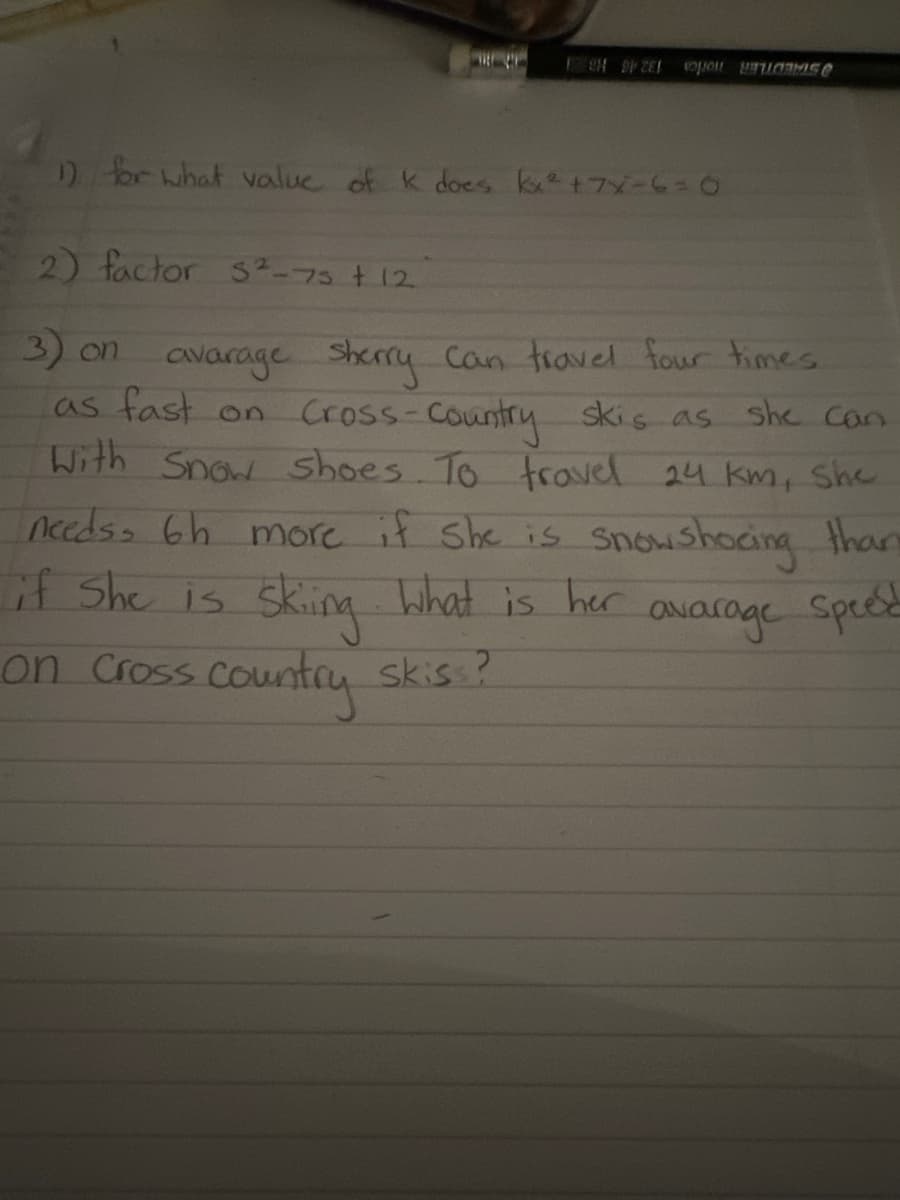 STAEDTLER norica 132 46 HB
1) for what value of k does kx² +7x-6=0
2) factor s²-7s + 12
3) on avarage Sherry can travel four times
as fast on Cross-Country skis as she can
With Snow shoes. To travel 24 km, she
needs 6h more if She is snowshoeing than
if She is skiing. What is her avarage speed
on cross country skis?